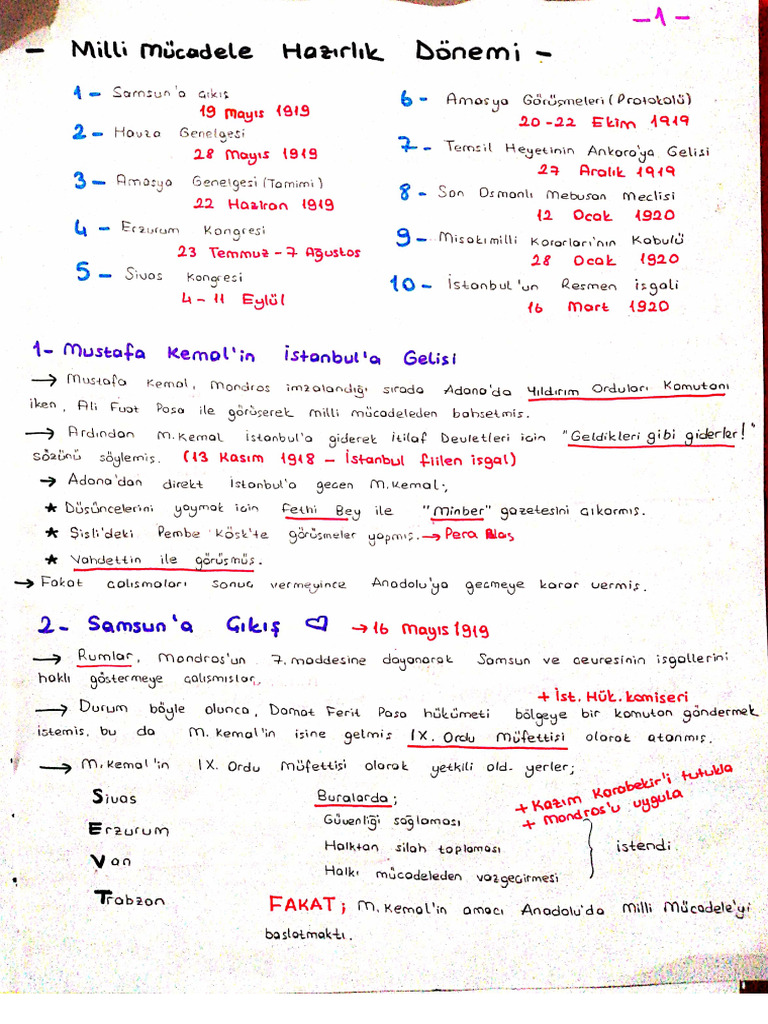 -1-
- Milli Mücadele Hazırlık Dönemi -
1- Samsun'a Çıkış
19 Mayıs 1919
2- Havza Genelgesi
28 Mayıs 1919
3- Amasya Genelgesi (Tamimi)
22 Haziran 1919
4- Erzurum Kongresi
23 Temmuz - 7 Ağustos
5- Sivas Kongresi
4-11 Eylül
6- Amasya Görüşmeleri (Protokolü)
20-22 Ekim 1919
7- Temsil Heyetinin Ankara'ya Gelisi
27 Aralık 1919
8- Son Osmanlı Mebusan Meclisi
12 Ocak 1920
9- Misakımilli Kararları'nın Kabulü
28 Ocak 1920
10- İstanbul'un Resmen işgali
16 Mart 1920
1- Mustafa Kemal'in İstanbul'a Gelisi
→ Mustafa Kemal, Mondros imzalandığı sırada Adana'da Yıldırım Orduları Komutanı
iken, Ali Fuat Pasa ile görüserek milli mücadeleden bahsetmis.
→ Ardından M.Kemal İstanbul'a giderek İtilaf Devletleri icin "Geldikleri gibi giderler!"
sözünü söylemis. (13 Kasım 1918 - İstanbul fiilen isgal)
→ Adana'dan direkt İstanbul'a gecen M.Kemal;
★ Düsüncelerini yaymak icin Fethi Bey ile "Minber" gazetesini cıkarmıs.
★ Sisli'deki Pembe Kösk'te görüsmeler yapmıs. → Pera Palas
★ Vahdettin ile görüsmüs.
→ Fakat calısmaları sonuc vermeyince Anadolu'ya gecmeye karar vermis.
2- Samsun'a Çıkış ♡ → 16 Mayıs 1919
→ Rumlar, Mondros'un 7. maddesine dayanarak Samsun ve cevresinin isgallerini
haklı göstermeye calısmıslar.
+ İst. Hük. komiseri
→ Durum böyle olunca, Damat Ferit Pasa hükümeti bölgeye bir komutan göndermek
istemis, bu da M.Kemal'in isine gelmis IX. Ordu Müfettisi olarak atanmıs.
→ M.Kemal'in IX. Ordu Müfettisi olarak yetkili old. yerler;
Sivas
Erzurum
Van
Trabzon
Buralarda;
+ Kazım Karabekir'i tutukla
+ Mondros'u uygula
Güvenliği sağlaması
Halktan silah toplaması
Halkı mücadeleden vazgecirmesi
istendi.
FAKAT; M.Kemal'in amacı Anadolu'da Milli Mücadele'yi
baslatmaktı.